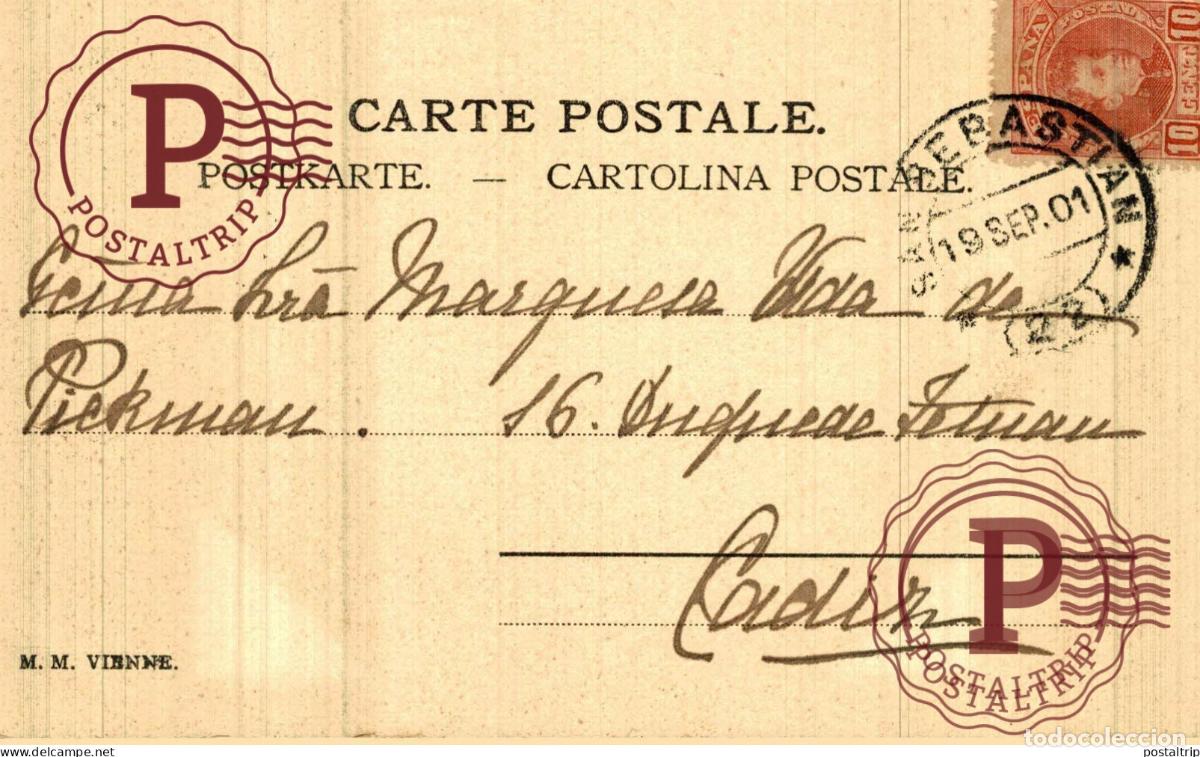 ESPAÑA
POSTAL
10 CENT 10
P
POSTALTRIP
CARTE POSTALE.
POSTKARTE. — CARTOLINA POSTALE.
SAN SEBASTIAN
19 SEP. 01
Srã Marquesa Vda de
Pickman. 16. Duque de Tetuan
Cadiz
M. M. VIENNE.
P
POSTALTRIP
POSTALTRIP
todocoleccion
https://www.delcampe.net
postaltrip